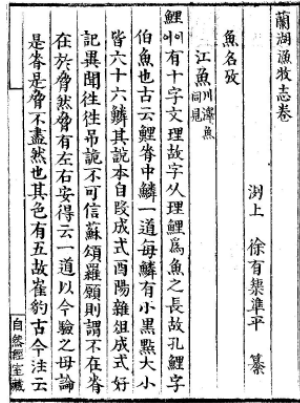 蘭湖漁牧志卷
洌上 徐有榘準平 纂
魚名攷
江魚 川澤魚同見
鯉 이어 有十字文理故字从理鯉爲魚之長故孔鯉字
伯魚也古云鯉脊中鱗一道每鱗有小黑點大小
皆六十六鱗其說本自段成式酉陽雜俎成式好
記異聞往往弔詭不可信蘇頌羅願則謂不在脊
在於脅然脅有左右安得云一道以今驗之毋論
是脊是脅不盡然也其色有五故崔豹古今注云
自然經室藏